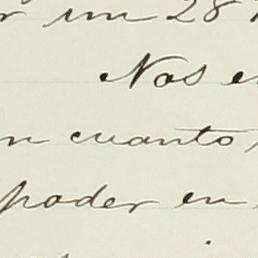 r un 28
Nos e
n cuanto,
poder en